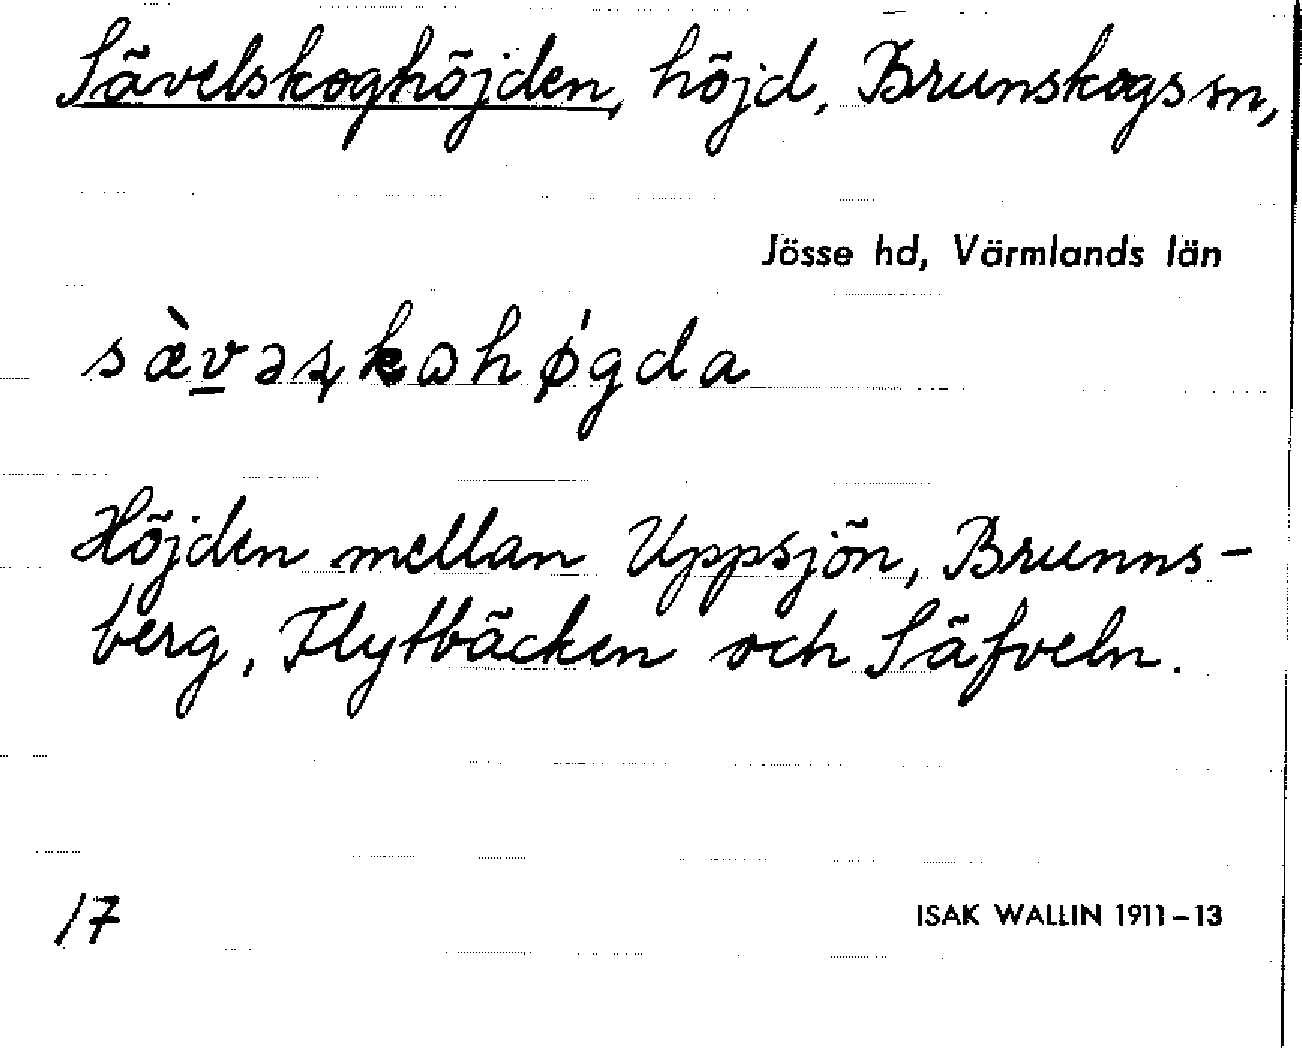 Sävelskoghöjden, höjd, Brunskogs sn,
Jösse hd, Värmlands län
sæ̀v̲əʂkɷhǿgda
Höjden mellan Uppsjön, Brunns-
berg, Flytbäcken och Säfveln.
17
ISAK WALLIN 1911–13